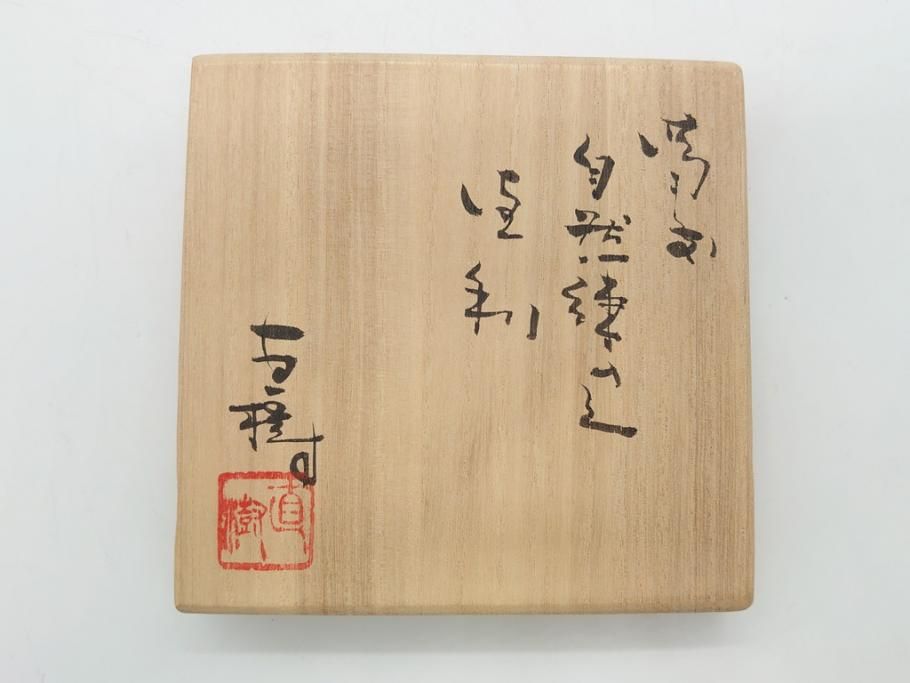 備前
自然練込
徳利
直樹
直樹